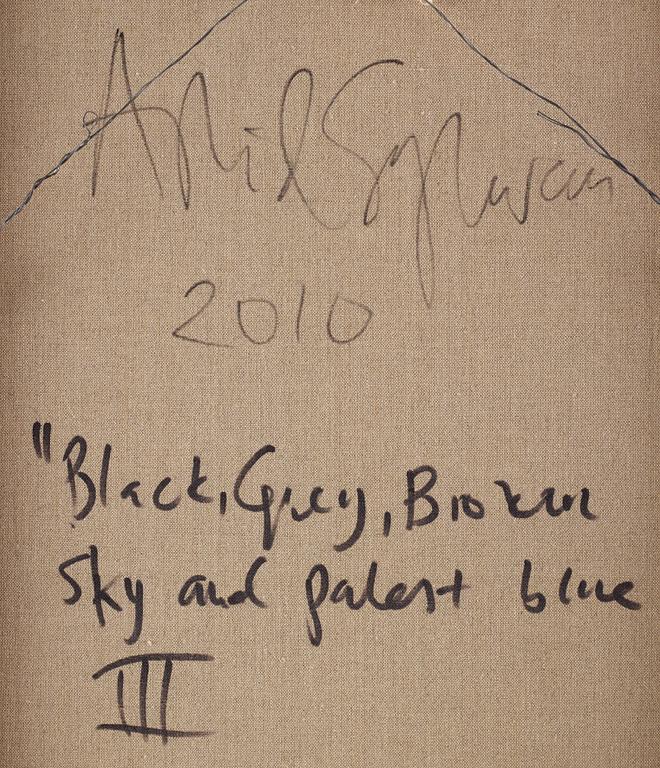 Astrid Sylwan
2010
"Black, Grey, Broken
Sky and palest blue
III